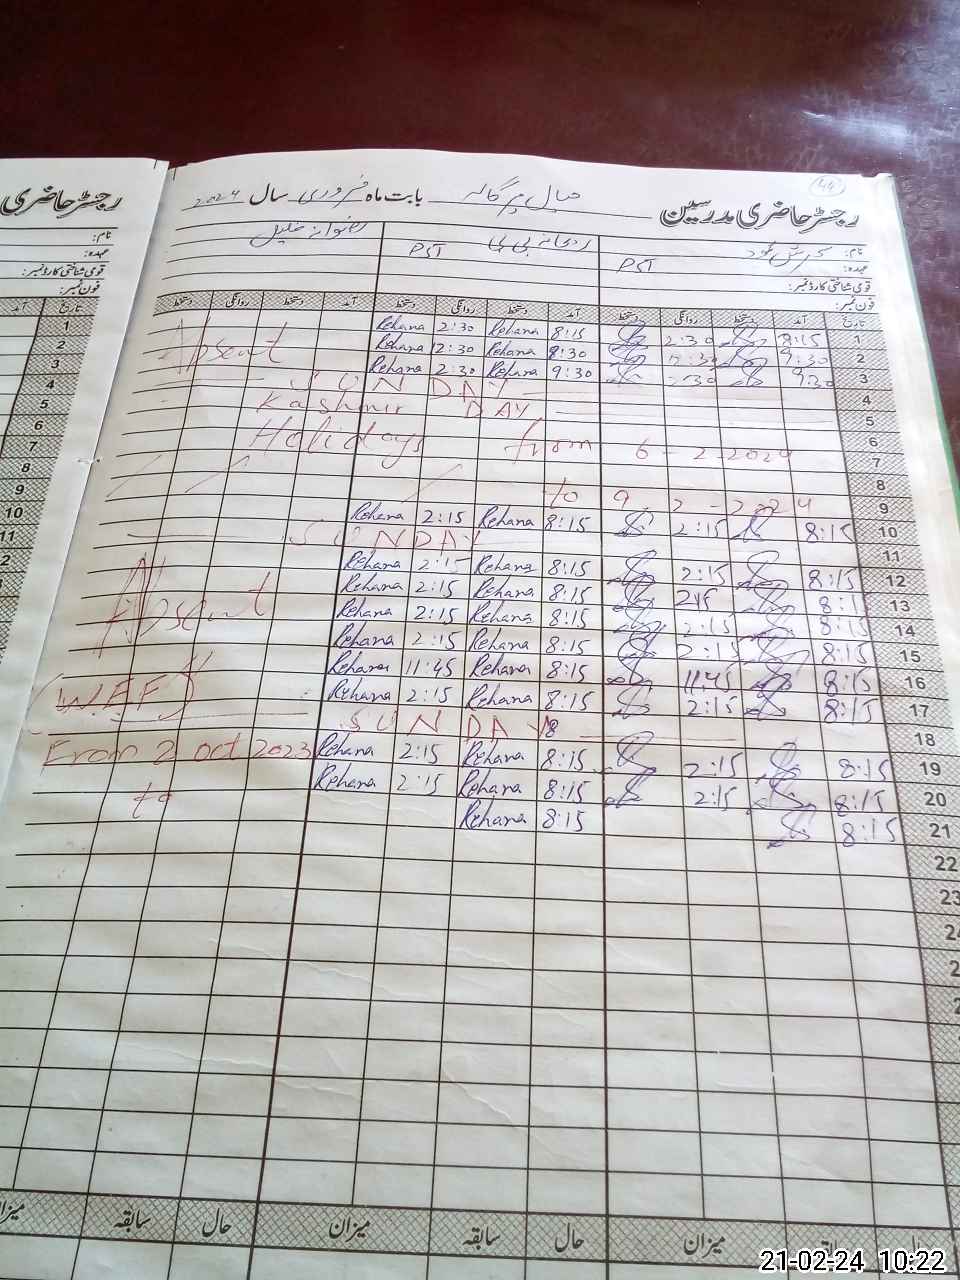 رجسٹر حاضری مدرسین بابت ماہ فروری سال 2024
44
رجسٹر حاضری
نام:
عہدہ: PST PST
قومی شناختی کارڈ نمبر:
فون نمبر:
نام:
عہدہ:
قومی شناختی کارڈ نمبر:
فون نمبر:
تاریخ آمد دستخط روانگی دستخط آمد دستخط روانگی دستخط آمد دستخط روانگی دستخط
تاریخ آمد
1 8:15 2:30 8:15 Rehana 2:30 Rehana
Absent
2 9:30 12:30 8:30 Rehana 12:30 Rehana
3 9:30 2:30 9:30 Rehana 2:30 Rehana
4 SUNDAY
5 Kashmir DAY
6 Holidays from 6-2-2024
7
8
9 to 9-2-2024
10 8:15 2:15 8:15 Rehana 2:15 Rehana
11 SUNDAY
12 8:15 2:15 8:15 Rehana 2:15 Rehana
13 8:15 215 8:15 Rehana 2:15 Rehana
Absent
14 8:15 2:15 8:15 Rehana 2:15 Rehana
15 8:15 2:15 8:15 Rehana 2:15 Rehana
16 8:15 11:45 8:15 Rehana 11:45 Rehana
17 8:15 2:15 8:15 Rehana 2:15 Rehana
W.E.F
18 SUNDAY
19 8:15 2:15 8:15 Rehana 2:15 Rehana
From 2 oct 2023
20 8:15 2:15 8:15 Rehana 2:15 Rehana
to
21 8:15 8:15 Rehana
22
23
میزان حال سابقہ میزان حال سابقہ
میزان
21-02-24 10:22